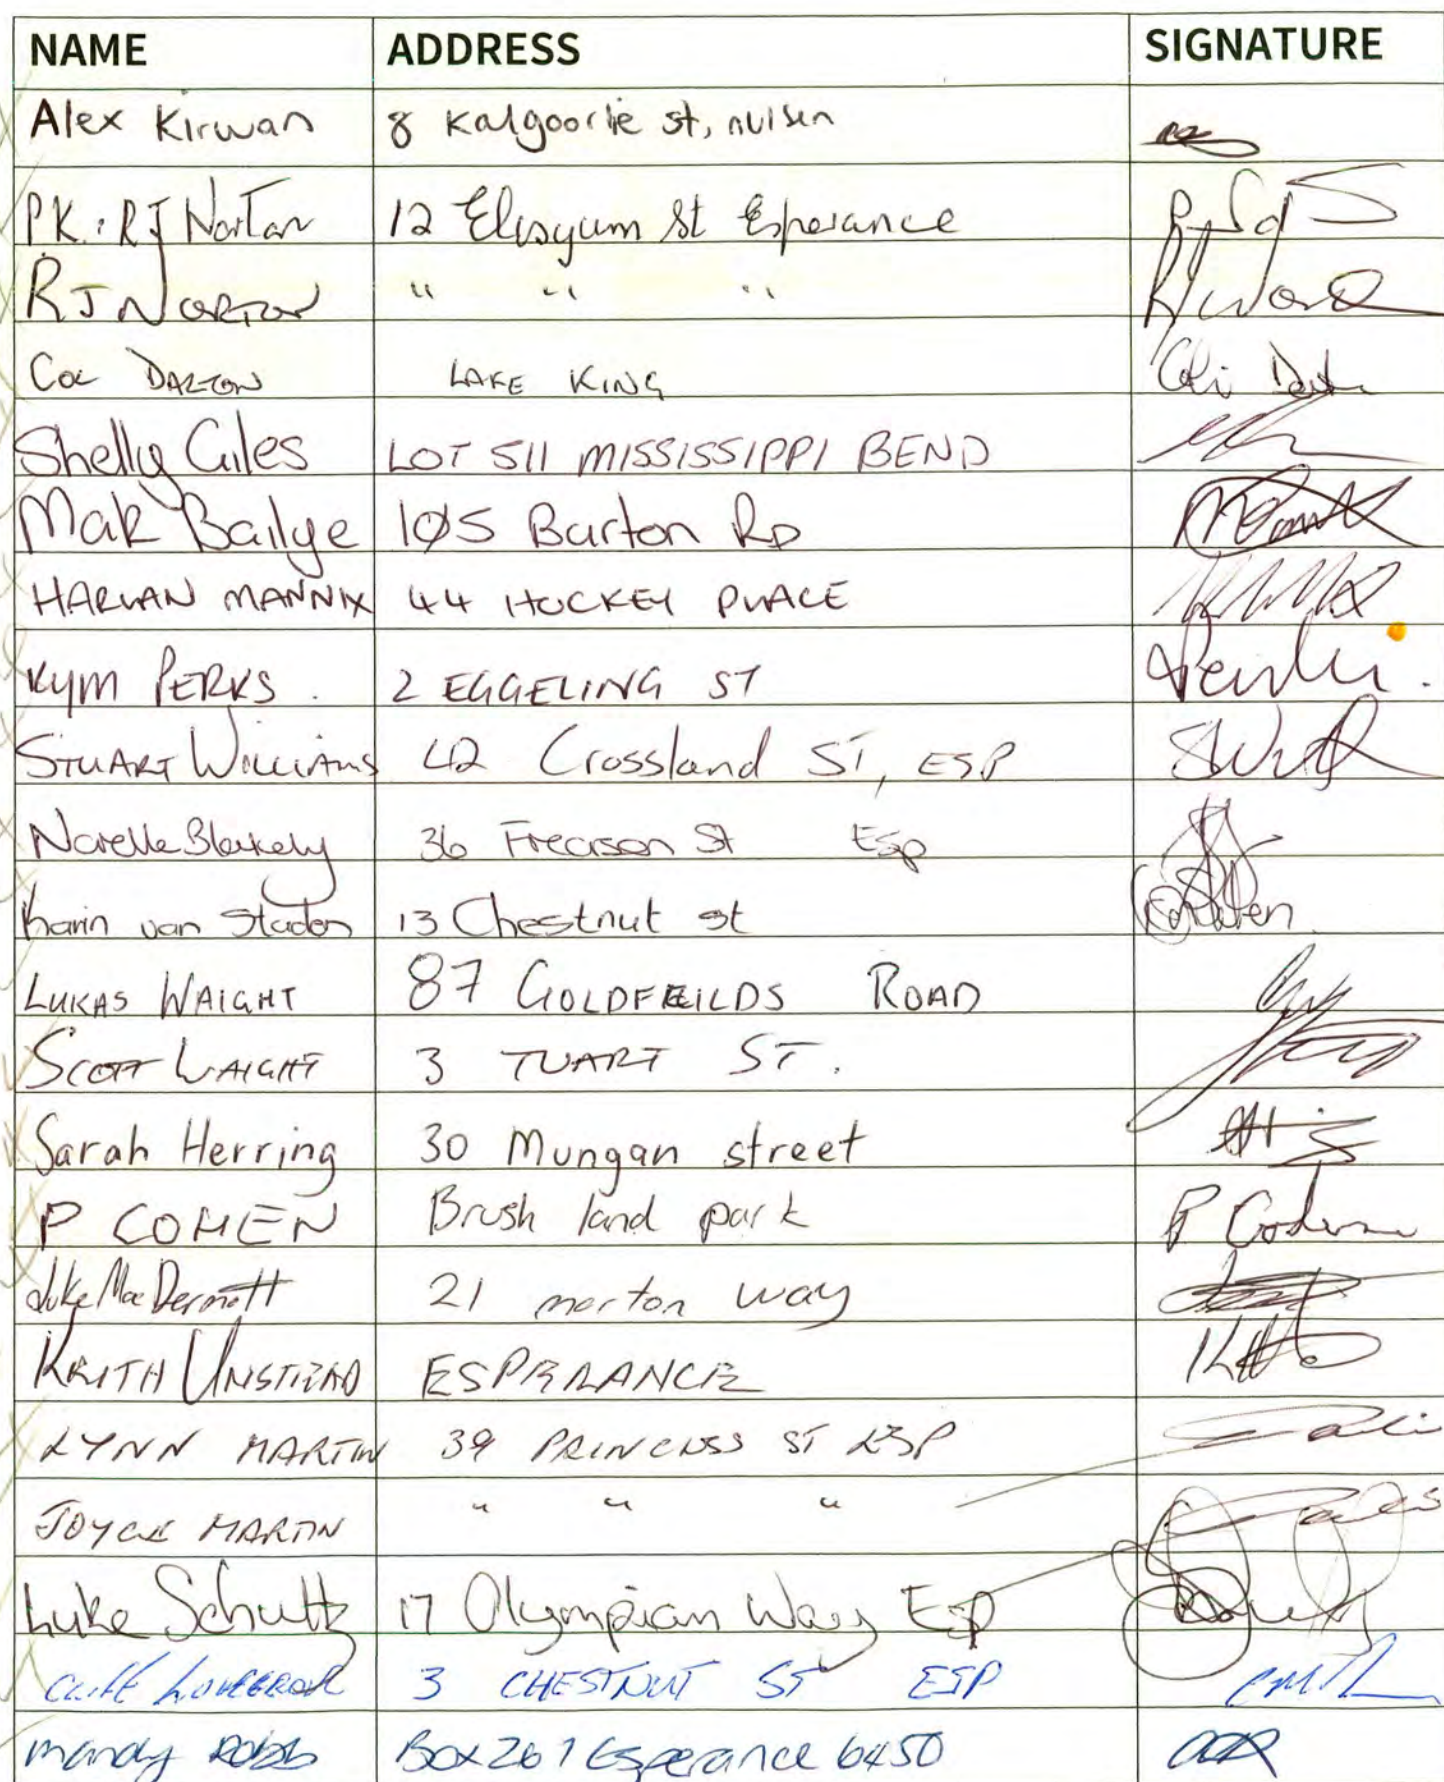 NAME ADDRESS SIGNATURE
Alex Kirwan 8 Kalgoorlie st, nulsen
PK. RJ Norton 12 Elysyum St Esperance
RJ NORTON " " "
COL DALTON LAKE KING
Shelly Giles LOT 511 MISSISSIPPI BEND
Mak Bailye 105 Barton RD
HARLAN MANNIX 44 HOCKEY PLACE
KYM PERKS. 2 EGGELING ST
STUART WILLIAMS 42 Crossland ST, ESP
Narelle Blakely 36 Freason St Esp
Karin van Staden 13 Chestnut st
LUKAS WAIGHT 87 GOLDFEILDS ROAD
SCOTT WAIGHT 3 TUART ST.
Sarah Herring 30 Mungan street
P COHEN Brush land park P
Luke MacDermott 21 morton way
KEITH UNSTEAD ESPERANCE
LYNN MARTIN 39 PRINCESS ST ESP
JOYCE MARTIN " " "
Luke Schultz 17 Olympian Way Esp
3 CHESTNUT ST ESP
Mandy Robb Box 267 Esperance 6450